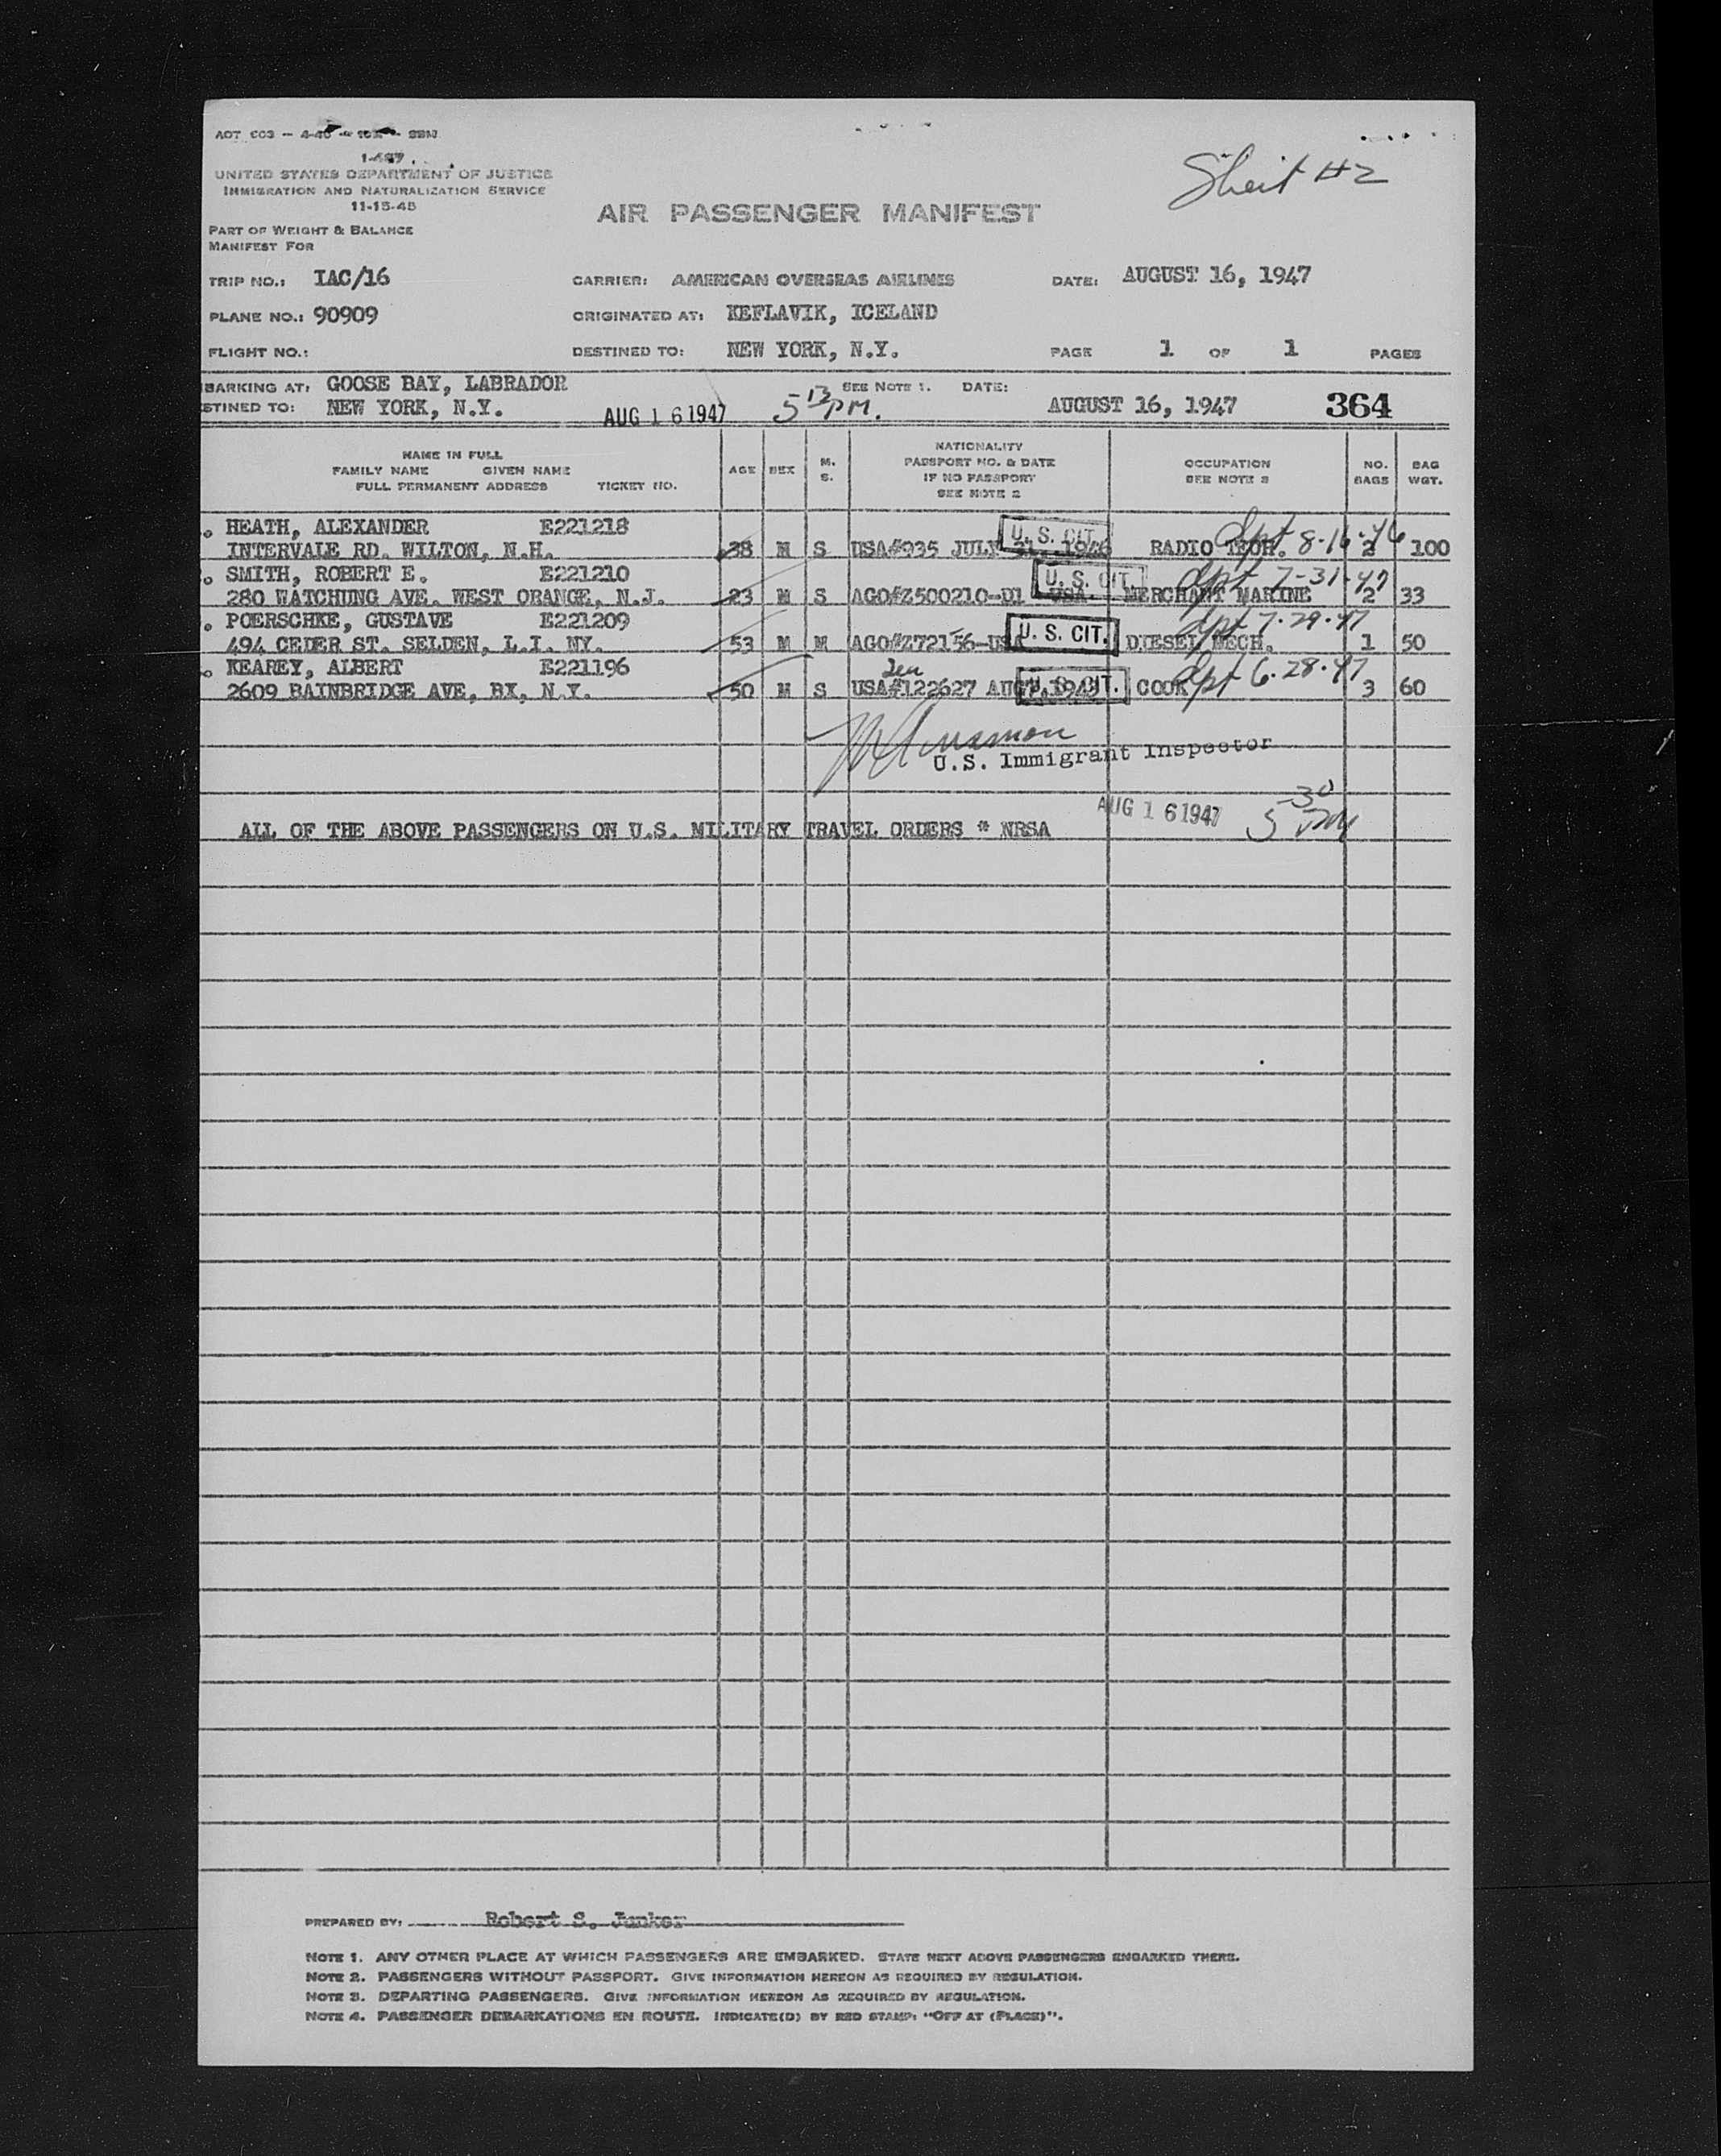 UNITED STATES DEPARTMENT OF JUSTICE
IMMIGRATION AND NATURALIZATION SERVICE
11-15-45
AIR PASSENGER MANIFEST
Sheit #2
PART OF WEIGHT & BALANCE
MANIFEST FOR
TRIP NO.: IAC/16 CARRIER: AMERICAN OVERSEAS AIRLINES DATE: AUGUST 16, 1947
PLANE NO.: 90909 ORIGINATED AT: KEFLAVIK, ICELAND
FLIGHT NO.: DESTINED TO: NEW YORK, N.Y. PAGE 1 OF 1 PAGES
BARKING AT: GOOSE BAY, LABRADOR SEE NOTE 1. DATE:
STINED TO: NEW YORK, N.Y. AUG 16 1947 5 13 PM. AUGUST 16, 1947 364
NAME IN FULL
FAMILY NAME GIVEN NAME
FULL PERMANENT ADDRESS TICKET NO.
AGE SEX M. S.
NATIONALITY
PASSPORT NO. & DATE
IF NO PASSPORT
SEE NOTE 2
OCCUPATION
SEE NOTE 3
NO. BAGS
BAG WGT.
. HEATH, ALEXANDER E221218 U. S. CIT. Dpt 8-16-46
INTERVALE RD. WILTON, N.H. 38 M S USA#935 JULY 1946 RADIO TECH. 2 100
. SMITH, ROBERT E. E221210 U. S. CIT. Dpt 7-31-47
280 WATCHUNG AVE. WEST ORANGE, N.J. 23 M S AGO#Z500210-D1 USA. MERCHANT MARINE 2 33
. POERSCHKE, GUSTAVE E221209 U. S. CIT. Dpt 7-29-47
494 CEDER ST. SELDEN, L.I. NY. 53 M M AGO#Z72156-USA DIESEL MECH. 1 50
. KEAREY, ALBERT E221196 U. S. CIT. Dpt 6-28-47
2609 BAINBRIDGE AVE, BX, N.Y. 50 M S USA#122627 COOK 3 60
U.S. Immigrant Inspector
AUG 16 1947 5 30 PM
ALL OF THE ABOVE PASSENGERS ON U.S. MILITARY TRAVEL ORDERS * NRSA
PREPARED BY: Robert S. Junker
NOTE 1. ANY OTHER PLACE AT WHICH PASSENGERS ARE EMBARKED. STATE NEXT ABOVE PASSENGERS EMBARKED THERE.
NOTE 2. PASSENGERS WITHOUT PASSPORT. GIVE INFORMATION HEREON AS REQUIRED BY REGULATION.
NOTE 3. DEPARTING PASSENGERS. GIVE INFORMATION HEREON AS REQUIRED BY REGULATION.
NOTE 4. PASSENGER DEBARKATIONS EN ROUTE. INDICATE(D) BY RED STAMP: "OFF AT (PLACE)".